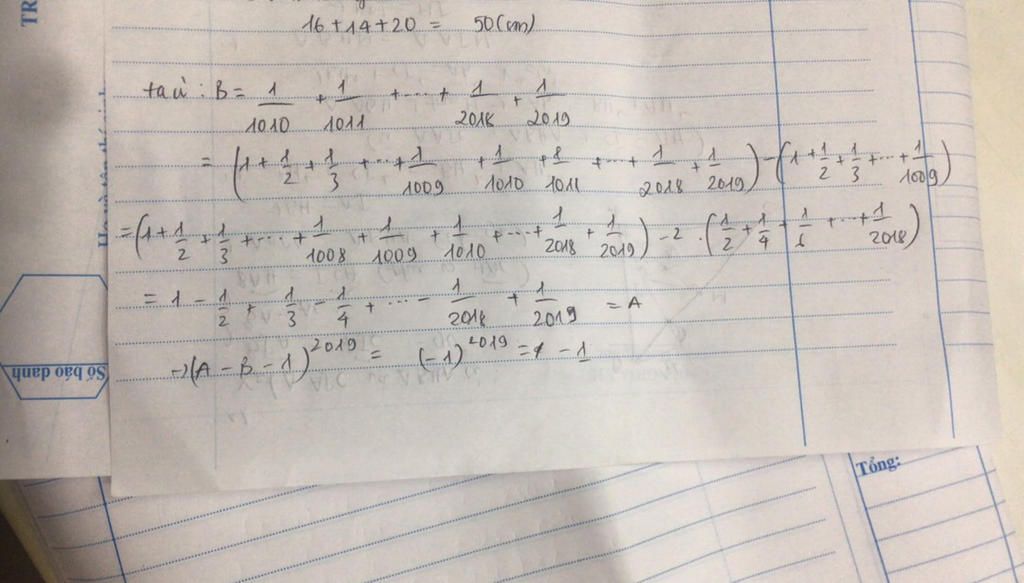 16 + 14 + 20 = 50 (cm)
ta có : B = 1/1010 + 1/1011 + ... + 1/2018 + 1/2019
= (1 + 1/2 + 1/3 + ... + 1/1009 + 1/1010 + 1/1011 + ... + 1/2018 + 1/2019) - (1 + 1/2 + 1/3 + ... + 1/1009)
= (1 + 1/2 + 1/3 + ... + 1/1008 + 1/1009 + 1/1010 + ... + 1/2018 + 1/2019) - 2 . (1/2 + 1/4 + 1/6 + ... + 1/2018)
= 1 - 1/2 + 1/3 - 1/4 + ... - 1/2018 + 1/2019 = A
→ (A - B - 1)^2019 = (-1)^2019 = -1
Số báo danh
TR
Tổng: